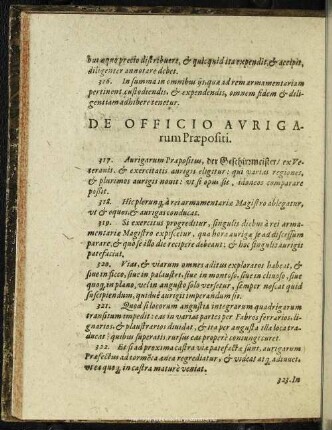 bus æquo precio distribuere, & quicquid ita expendit, & accipit,
diligenter annotare debet.
316. In summa in omnibus ijs, quæ ad rem armamentariam
pertinent custodiendis, & expendendis, omnem fidem & dili-
gentiam adhibere tenetur.
DE OFFICIO AVRIGA-
rum Præpositi.
317. Aurigarum Præpositus, der Geschirrmeister/ ex Ve-
teranis, & exercitatis aurigis eligitur: qui varias regiones,
& plurimos aurigas novit: vt si opus sit, idoneos comparare
possit.
318. Hic plerunq; à rei armamentariæ Magistro ablegatur,
vt & equos, & aurigas conducat.
319. Si exercitus progreditur, singulis diebus à rei ar-
mamentariæ Magistro expiscetur, qua hora aurigæ se ad discessum
parare, & quò se illo die recipere debeant: & hæc singulis aurigis
patefaciat.
320. Vias, & viarum omnes aditus exploratos habeat, &
siue in sicco, siue in palustre, siue in montoso, siue in clivoso, siue
quoq; in plano, vel in angusto solo versetur, semper noscat quid
suscipiendum, quidue aurigis imperandum sit.
321. Quod si locorum angustia integrarum quadrigarum
transitum impedit: eas in varias partes per Fabros ferrarios, li-
gnarios, & plaustrarios diuidat, & ita per angusta illa loca tra-
ducat: quibus superatis, rursus eas properè coniungi curet.
322. Et si ad proxima castra viæ patefactæ sunt, aurigarum
Præfectus ad tormenta anteà regrediatur, & videat atq; adiuuet,
vt ea quoq; in castra maturè veniat.
323. In